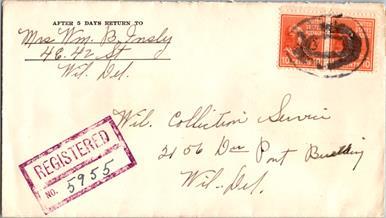 AFTER 5 DAYS RETURN TO
Mrs Wm. B. Insly
46.42 St
Wil. Del.
10 10
REGISTERED
NO. 5955
Wil. Colliction Servici
2156 Du Pont Building
Wil-Del.